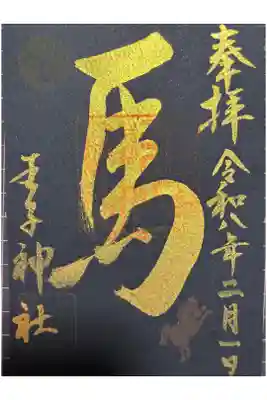 奉拝 令和八年二月一日
馬
神社